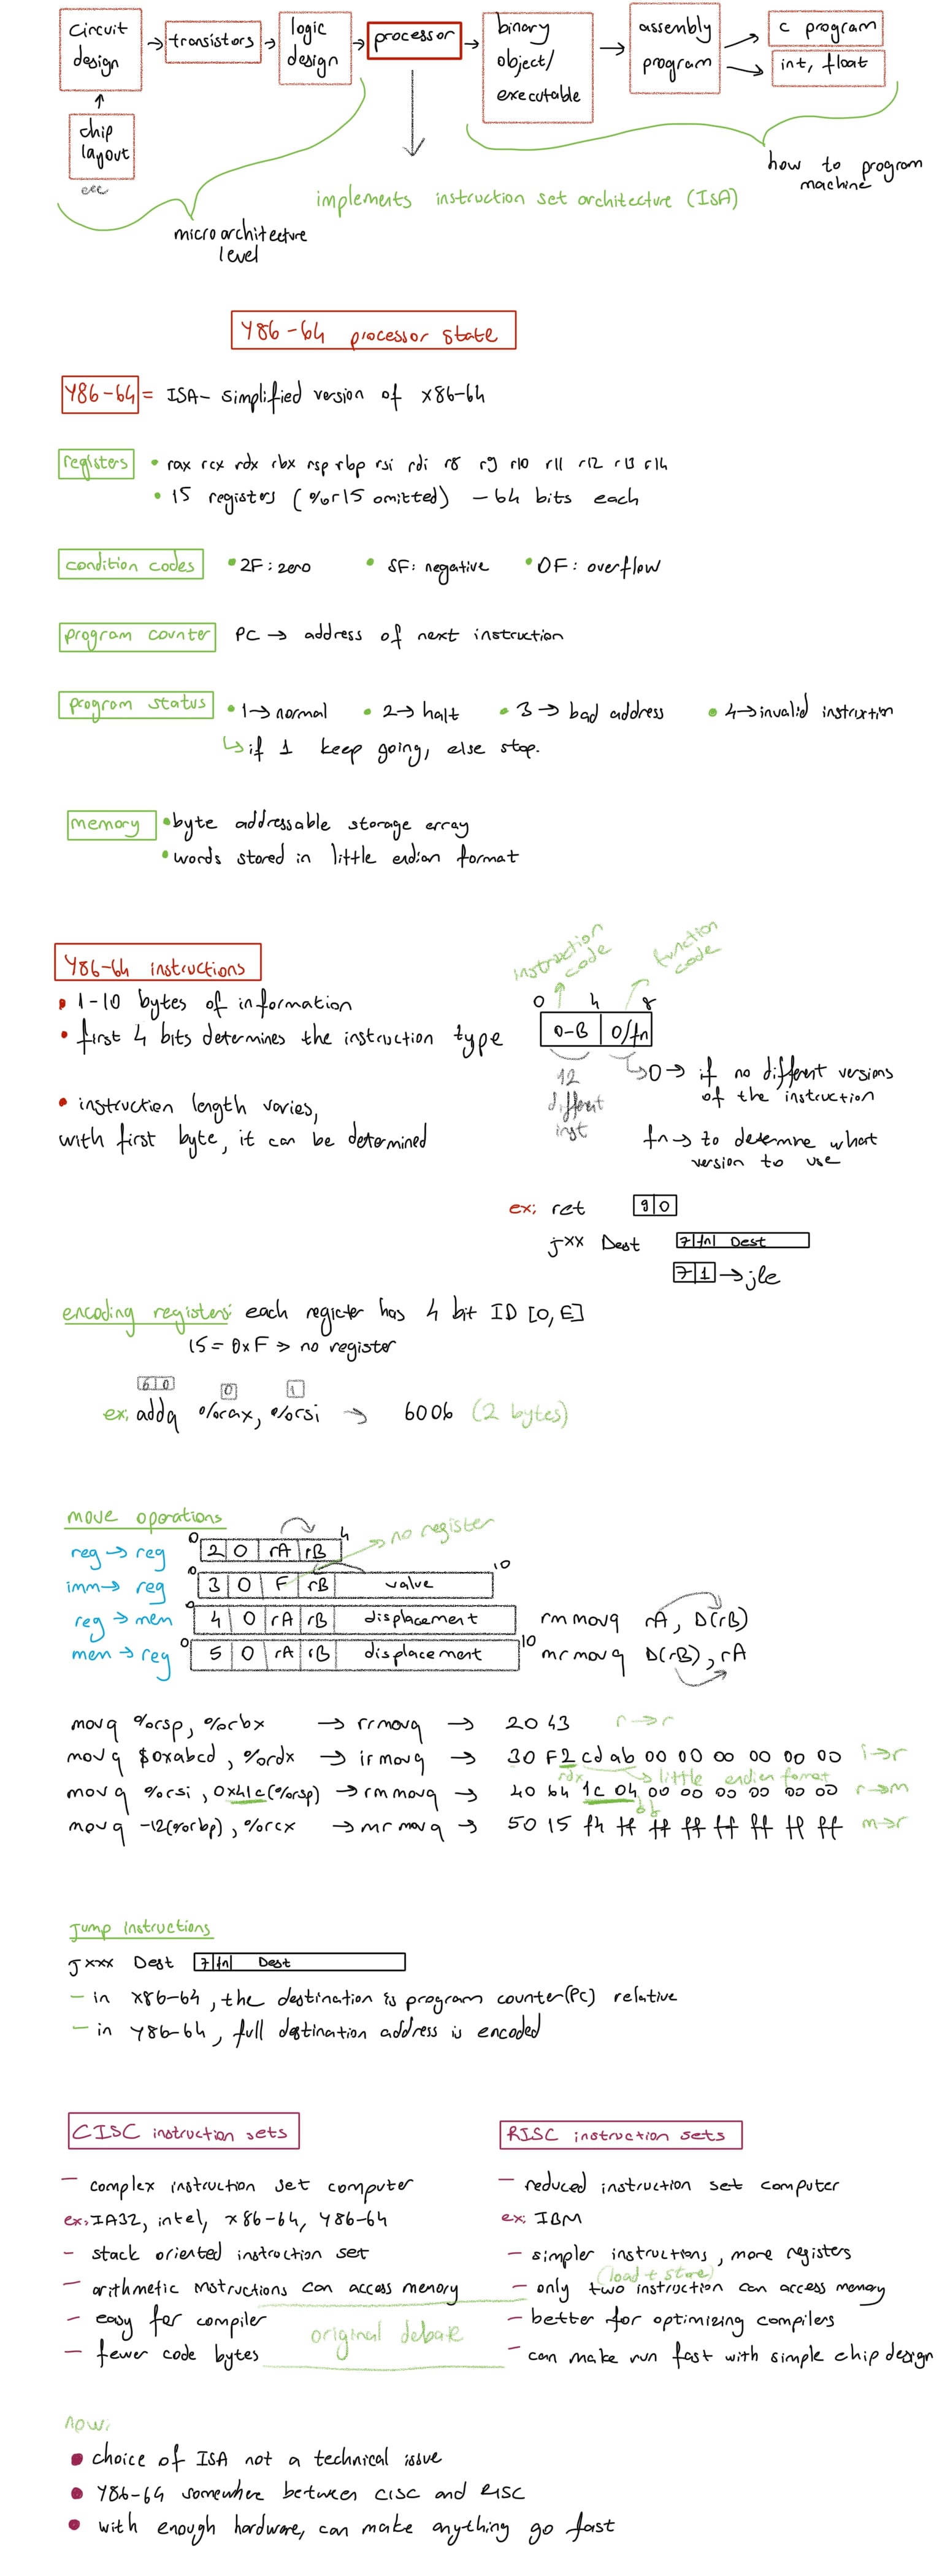 circuit design → transistors → logic design → processor → binary object/ executable → assembly program → c program
int, float
chip layout
how to program machine
implements instruction set architecture (ISA)
micro architecture level
Y86-64 processor state
Y86-64 = ISA- simplified version of x86-64
registers • rax rcx rdx rbx rsp rbp rsi rdi r8 r9 r10 r11 r12 r13 r14
• 15 registers (%r15 omitted) - 64 bits each
condition codes • ZF: zero • SF: negative • OF: overflow
program counter PC → address of next instruction
program status • 1→ normal • 2→ halt • 3→ bad address • 4→ invalid instruction
↳ if 1 keep going, else stop.
memory • byte addressable storage array
• words stored in little endian format
instruction code
function code
Y86-64 instructions
• 1-10 bytes of information
0 4 8
• first 4 bits determines the instruction type
0-B 0/fn
12 different inst
↳ 0 → if no different versions of the instruction
• instruction length varies,
with first byte, it can be determined
fn → to determine what version to use
ex: ret 9 0
jxx Dest 7 fn Dest
7 1 → jle
encoding registers: each register has 4 bit ID [0, E]
15 = 0xF ⇒ no register
6 0 0 1
ex: addq %rax, %rsi → 6006 (2 bytes)
move operations
no register
reg → reg 0 2 0 rA rB 4
imm → reg 0 3 0 F rB value 10
reg → mem 0 4 0 rA rB displacement rmmovq rA, D(rB)
mem → reg 0 5 0 rA rB displacement 10 mrmovq D(rB), rA
movq %rsp, %rbx → rrmovq → 20 43 r→r
movq $0xabcd, %rdx → irmovq → 30 F2 cd ab 00 00 00 00 00 00 i→r
rdx → little endian format
movq %rsi, 0x41c(%rsp) → rmmovq → 40 64 1c 04 00 00 00 00 00 00 r→m
movq -12(%rbp), %rcx → mrmovq → 50 15 f4 ff ff ff ff ff ff ff m→r
Jump Instructions
Jxxx Dest 7 fn Dest
- in x86-64, the destination is program counter(PC) relative
- in y86-64, full destination address is encoded
CISC instruction sets
- complex instruction set computer
ex: IA32, intel, x86-64, Y86-64
- stack oriented instruction set
- arithmetic instructions can access memory
- easy for compiler
- fewer code bytes
original debate
RISC instruction sets
- reduced instruction set computer
ex: IBM
- simpler instructions, more registers
(load + store)
- only two instruction can access memory
- better for optimizing compilers
- can make run fast with simple chip design
now:
• choice of ISA not a technical issue
• Y86-64 somewhere between CISC and RISC
• with enough hardware, can make anything go fast